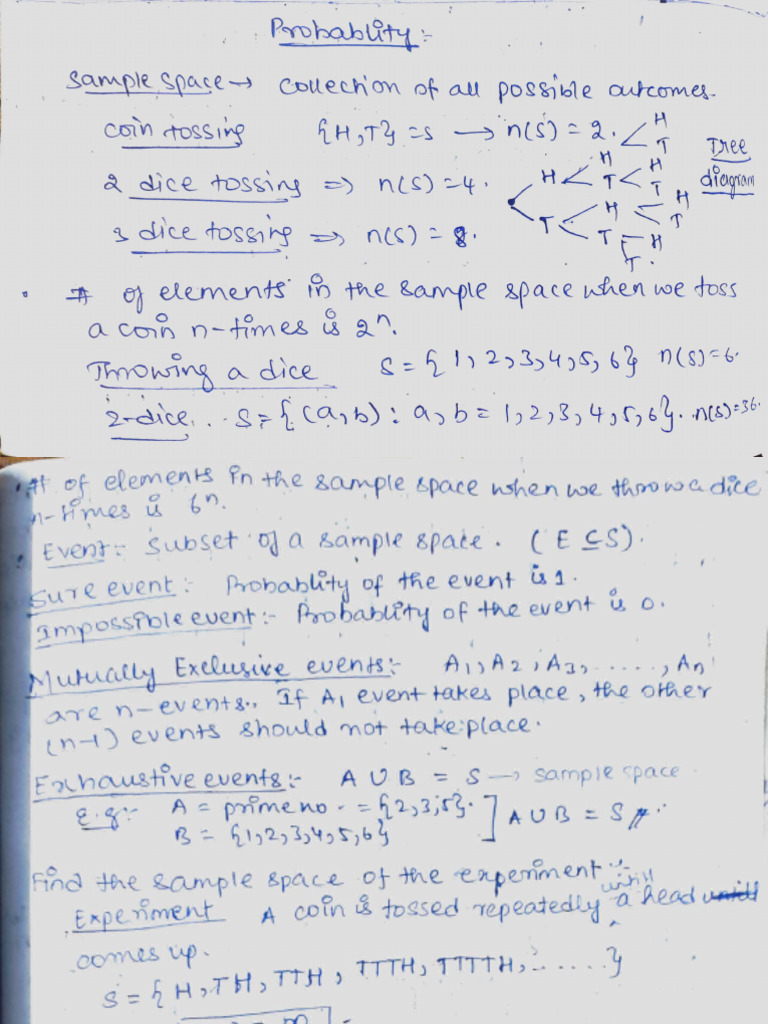 Probablity :-
Sample Space → Collection of all possible outcomes.
coin tossing {H,T} = S → n(S) = 2. H T
Tree diagram
2 dice tossing ⇒ n(S) = 4. H H T H T
3 dice tossing ⇒ n(S) = 8. T H T H T H T
• # of elements in the sample space when we toss
a coin n-times is 2ⁿ.
Throwing a dice S = {1,2,3,4,5,6} n(S)=6.
2-dice... S = {(a,b) : a,b = 1,2,3,4,5,6}. n(S)=36.
• # of elements in the sample space when we throw a dice
n-times is 6ⁿ.
Event:- Subset of a sample space. (E ⊆ S).
Sure event :- Probablity of the event is 1.
Impossible event :- Probablity of the event is 0.
Mutually Exclusive events:- A₁, A₂, A₃, ....., Aₙ
are n-events.. If A₁ event takes place, the other
(n-1) events should not take place.
Exhaustive events:- A ∪ B = S → sample space
E.g:- A = prime no. = {2,3,5}.
B = {1,2,3,4,5,6} ] A ∪ B = S
Find the sample space of the experiment :-
Experiment A coin is tossed repeatedly until a head until
comes up.
S = {H, TH, TTH, TTTH, TTTTH, .......}